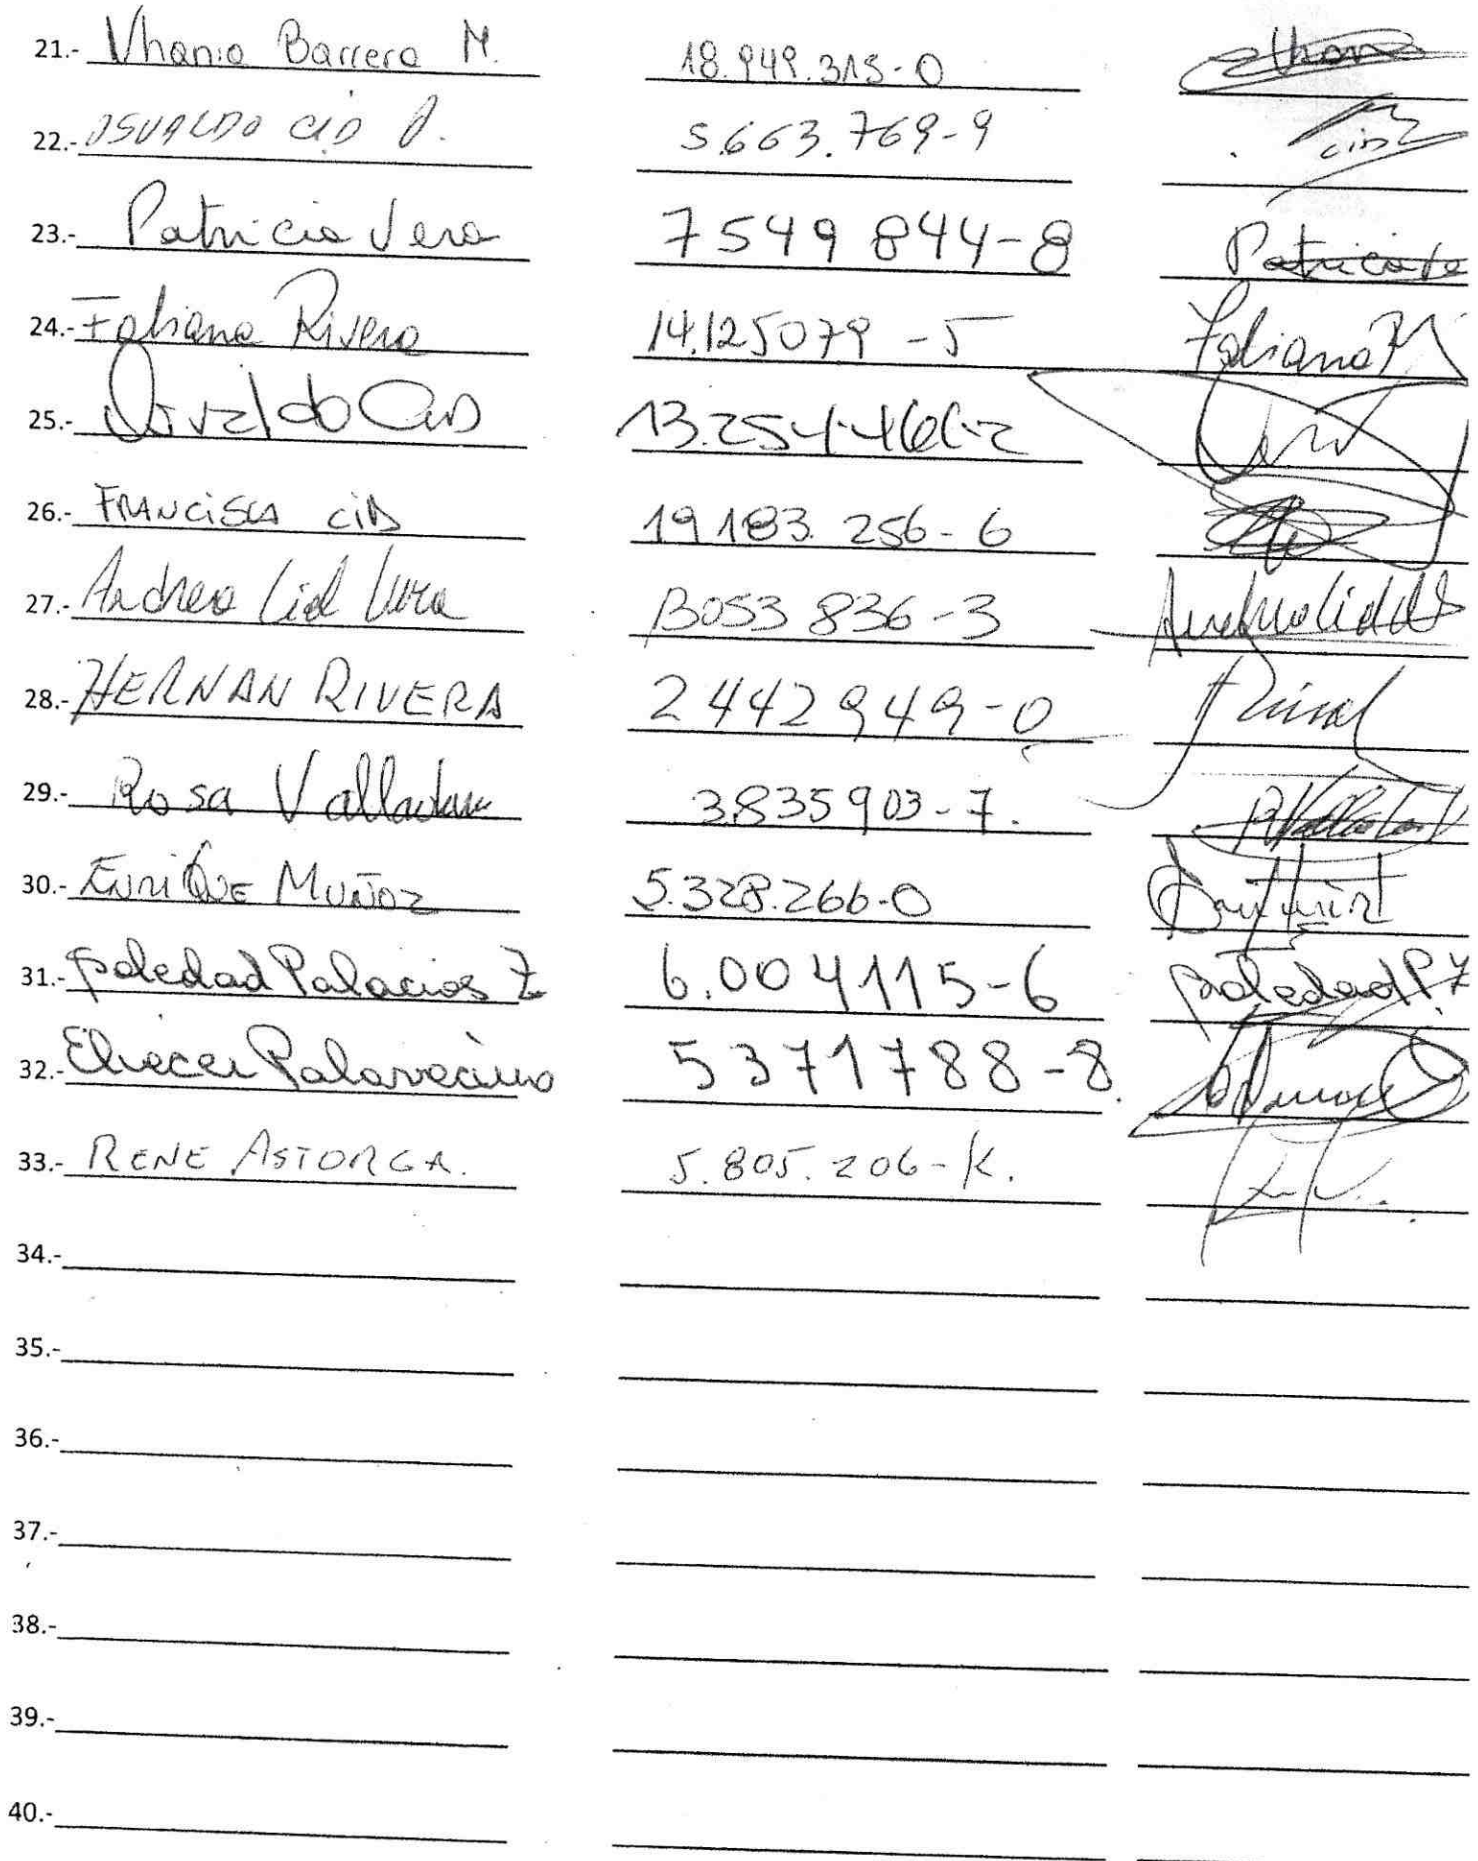 21.- Vhania Barrera M. 18.949.315-0
22.- OSVALDO CID P. 5.663.769-9 cid
23.- Patricia Vera 7549844-8 Patricia Ve
24.- Fabiana Rivera 14.125079-5 Fabiana R
25.- Osvaldo Cid
26.- FRANCISCA CID 19.183.256-6
27.- Andrea Cid Vera 13053836-3
28.- HERNAN RIVERA 2442949-0
29.- Rosa Valladares 3.835903-7.
30.- ENRIQUE MUÑOZ 5.328.266-0
31.- Soledad Palacios Z 6.004115-6 Soledad P. Z
32.- Eliecer Palavecino 5371788-8.
33.- RENE ASTORGA. 5.805.206-K.
34.-
35.-
36.-
37.-
38.-
39.-
40.-